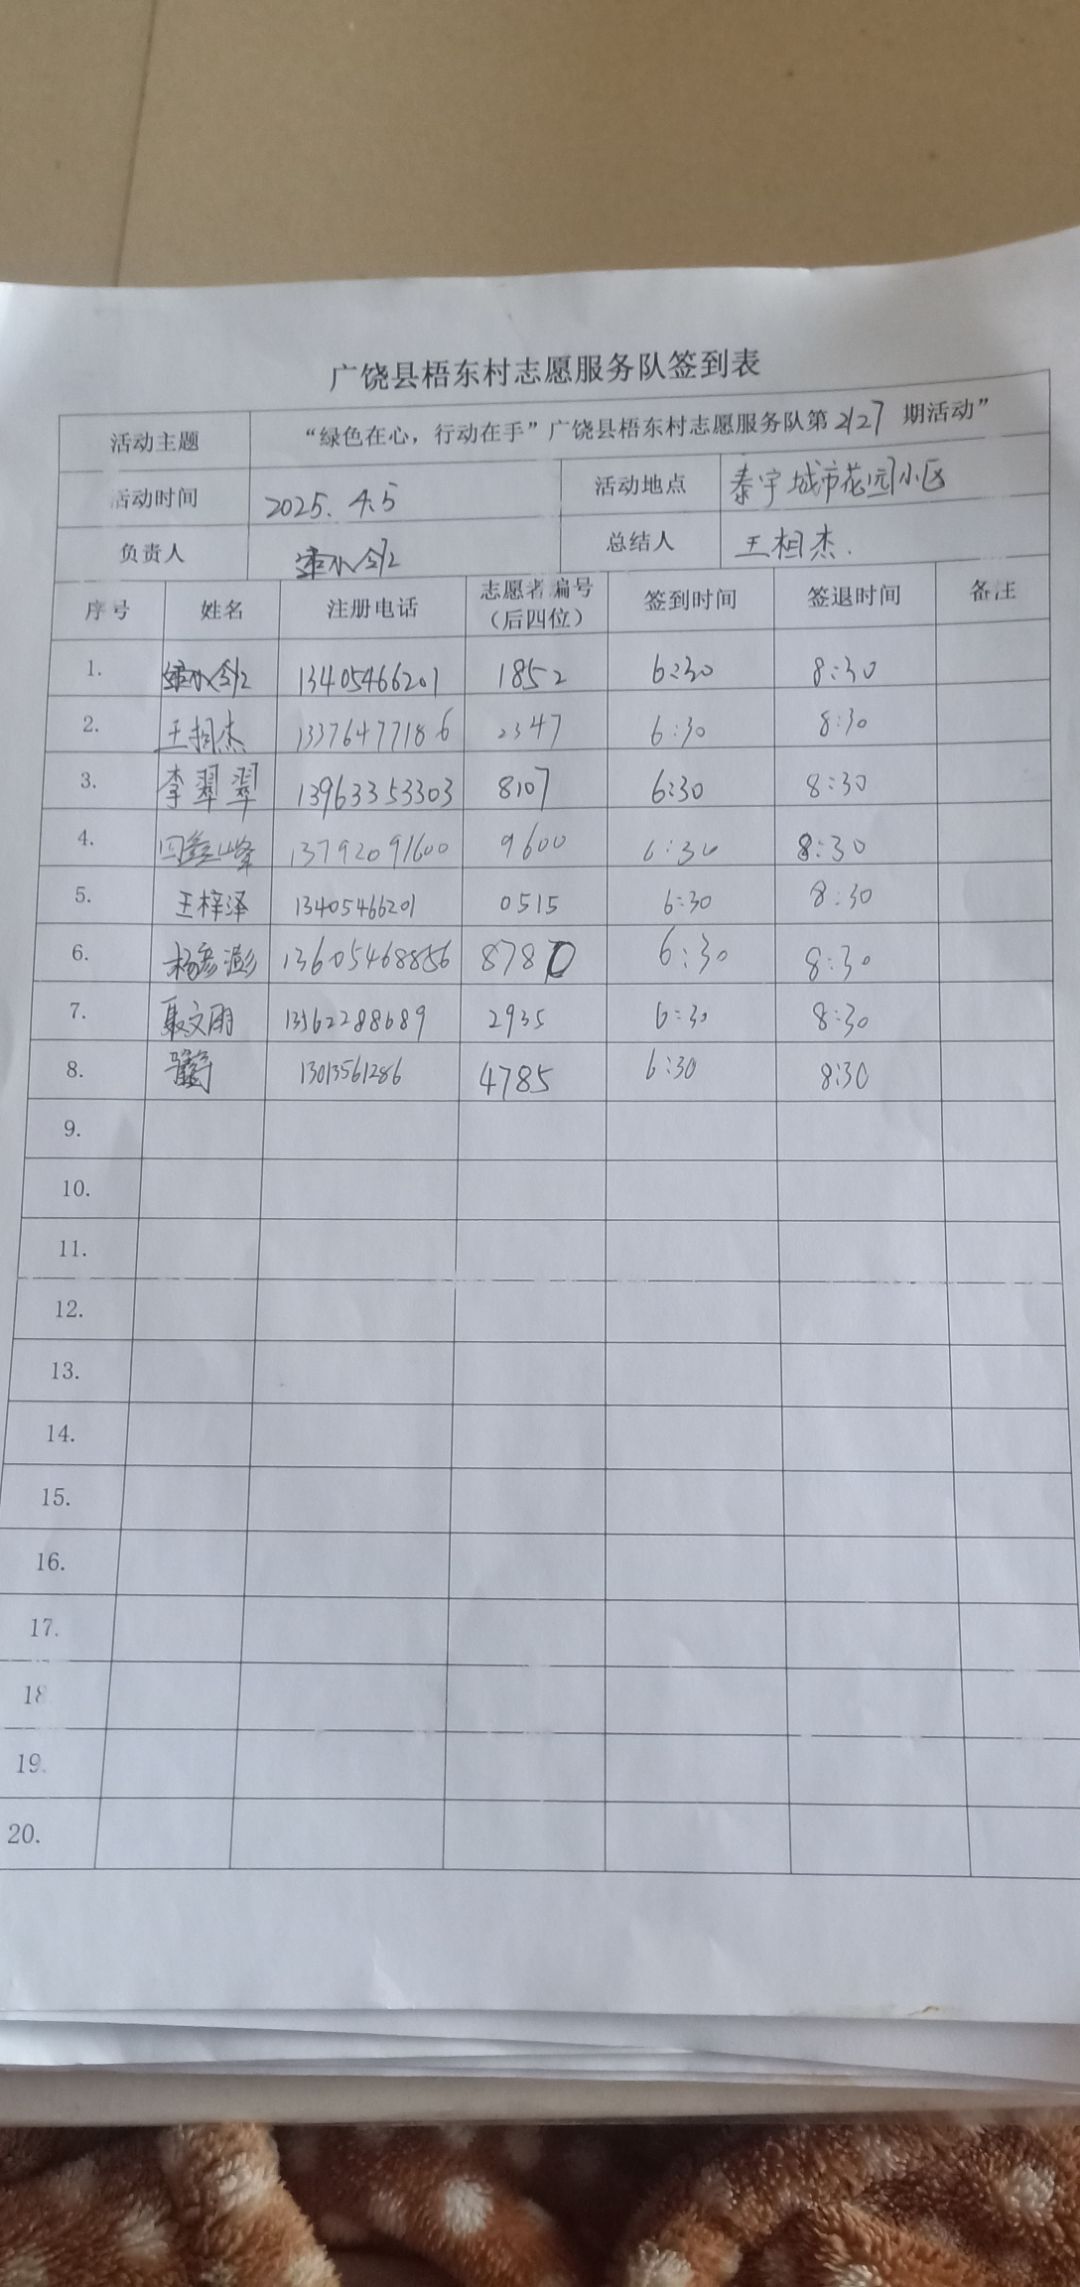 广饶县梧东村志愿服务队签到表
活动主题 “绿色在心，行动在手”广饶县梧东村志愿服务队第2127期活动”
活动时间 2025.4.5 活动地点 泰宇城市花园小区
负责人 总结人 王相杰.
序号 姓名 注册电话 志愿者编号（后四位） 签到时间 签退时间 备注
1. 13405466201 1852 6:30 8:30
2. 王相杰 13376477186 2347 6:30 8:30
3. 李翠翠 13963353303 8107 6:30 8:30
4. 13792091600 9600 6:30 8:30
5. 王梓泽 13405466201 0515 6:30 8:30
6. 杨彦澎 13605468856 8780 6:30 8:30
7. 聂文雨 13562288689 2935 6:30 8:30
8. 13013561286 4785 6:30 8:30
9.
10.
11.
12.
13.
14.
15.
16.
17.
18
19.
20.